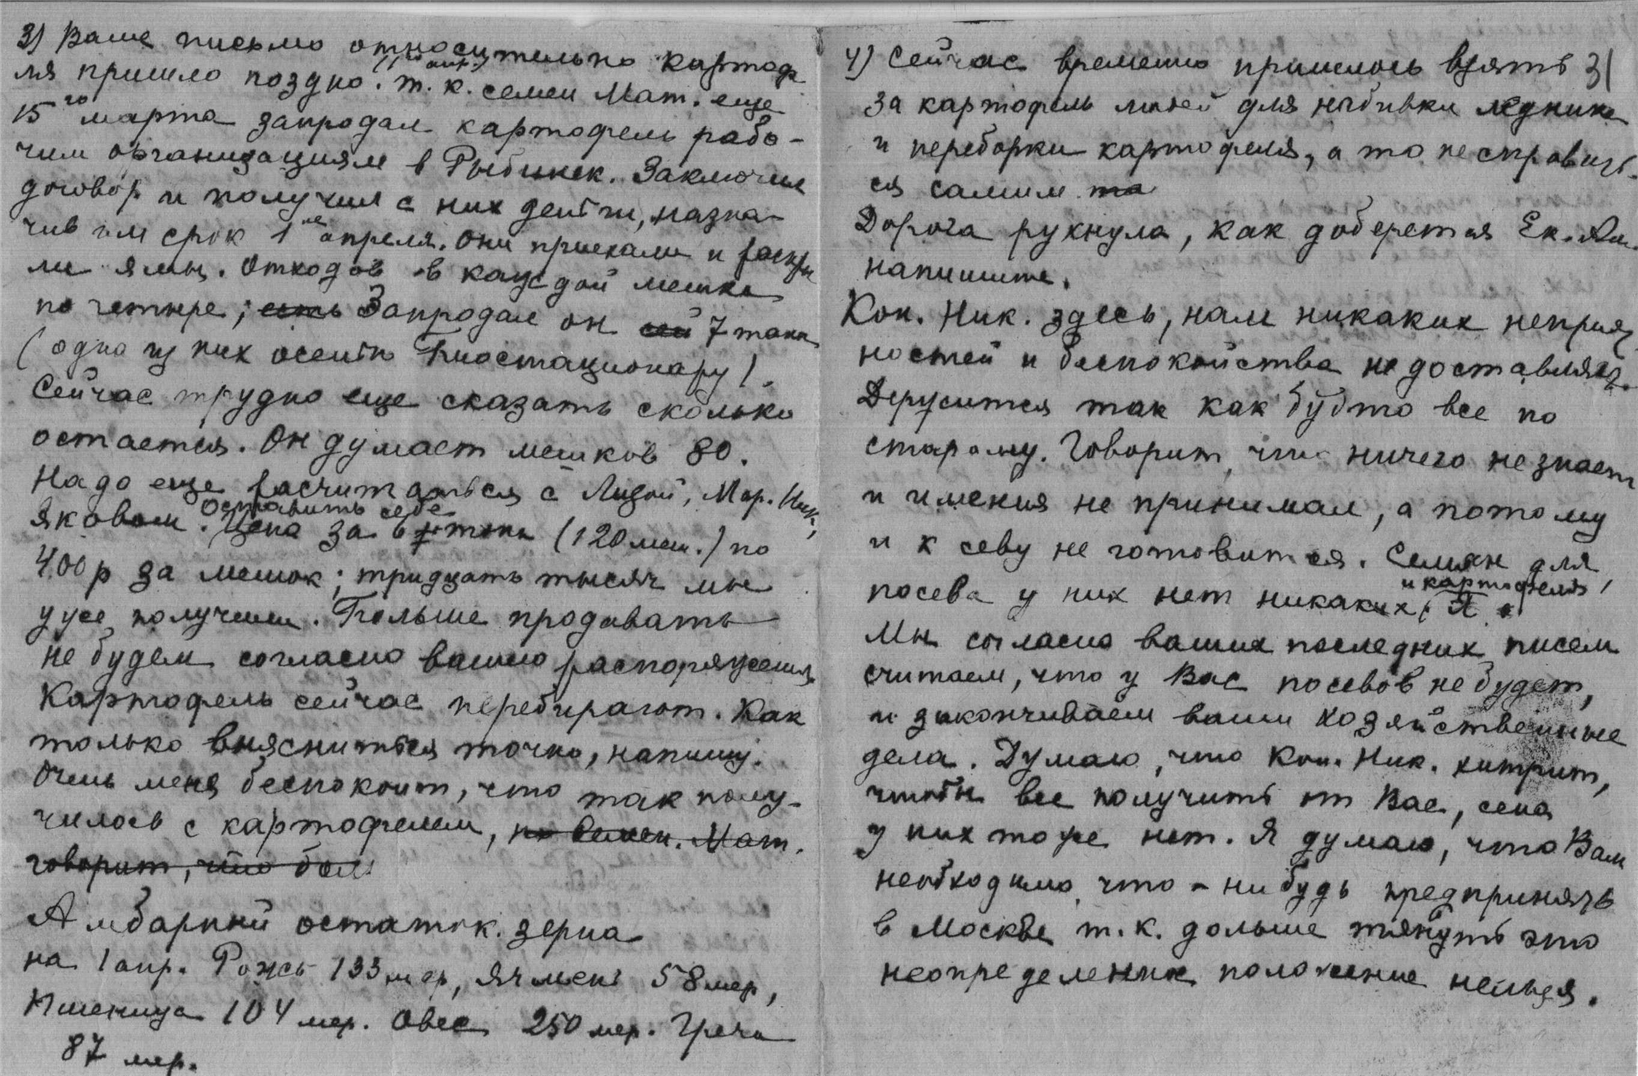 3) Ваше письмо относительно картофе
ля пришло поздно. (11го апр.) т. к. семен Мат. еще
15го марта запродал картофель рабо-
чим организациям в Рыбинск. Заключил
договор и получил с них деньги, назна-
чив им срок 1е апреля. Они приехали и раскры
ли ямы. Отходов в каждой мешка
по четыре; Запродал он 7 тонн
(одна из них осенью Биостационару).
Сейчас трудно еще сказать сколько
остается. Он думает мешков 80.
Надо еще расчитаться с Лизой, Мар. Ник,
Яковом. Оставить себе Цена за 6 тонн (120 меш.) по
400 р за мешок; тридцать тысяч мы
уже получили. Больше продавать
не будем согласно вашего распоряжения
Картофель сейчас перебирают. Как
только выяснится точно, напишу.
Очень меня беспокоит, что так полу-
чилось с картофелем, но Семен. Мат.
говорит, что был
Амбарный остаток зерна
на 1 апр. Рожь 133 мер, ячмень 58 мер,
Пшеница 104 мер. Овес 250 мер. Греча
87 мер.
4) Сейчас временно пришлось взять 31
за картофель людей для набивки ледника
и переборки картофеля, а то не справить-
ся самим
Дорога рухнула, как доберется Ек. Ал.
напишите.
Кон. Ник. здесь, нам никаких неприят
ностей и беспокойства не доставляет.
Держится так как будто все по
старому. Говорит, что ничего не знает
и имения не принимал, а потому
и к севу не готовится. Семян для
посева и картофеля, у них нет никаких,
Мы согласно ваших последних писем
считаем, что у Вас посевов не будет,
и заканчиваем ваши хозяйственные
дела. Думаю, что Кон. Ник. хитрит,
чтобы все получить от Вас, сена
у них тоже нет. Я думаю, что Вам
необходимо что-нибудь предпринять
в Москве т. к. дольше тянуть это
неопределенное положение нельзя.